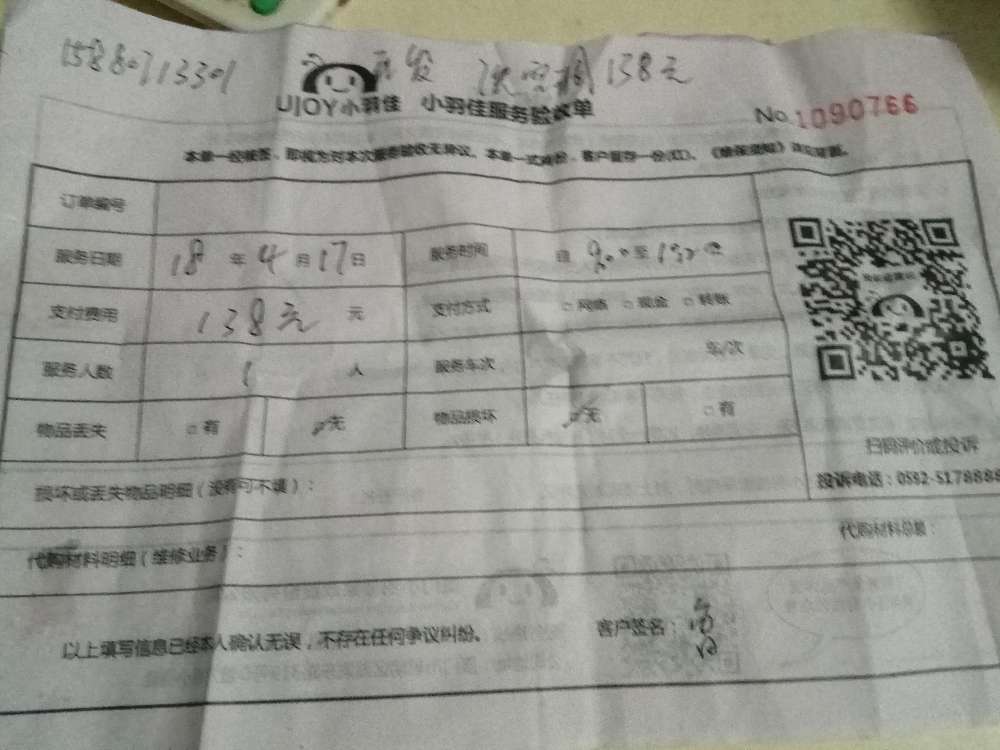 15880713301 138元
UJOY小羽佳 小羽佳服务验收单
No. 1090766
本单一经签署，即视为对本次服务验收无异议。本单一式两份，客户留存一份(红)。
订单编号
服务日期 18 年 4 月 17 日 服务时间 自 至
支付费用 138元 元 支付方式 □ 网络 □ 现金 □ 转账
服务人数 1 人 服务车次 车/次
物品丢失 □ 有 □ 无 物品损坏 □ 无 □ 有
扫码评价或投诉
损坏或丢失物品明细（没有可不填）： 投诉电话：0592-5178888
代购材料明细（维修业务）： 代购材料总额：
以上填写信息已经本人确认无误，不存在任何争议纠纷。 客户签名：